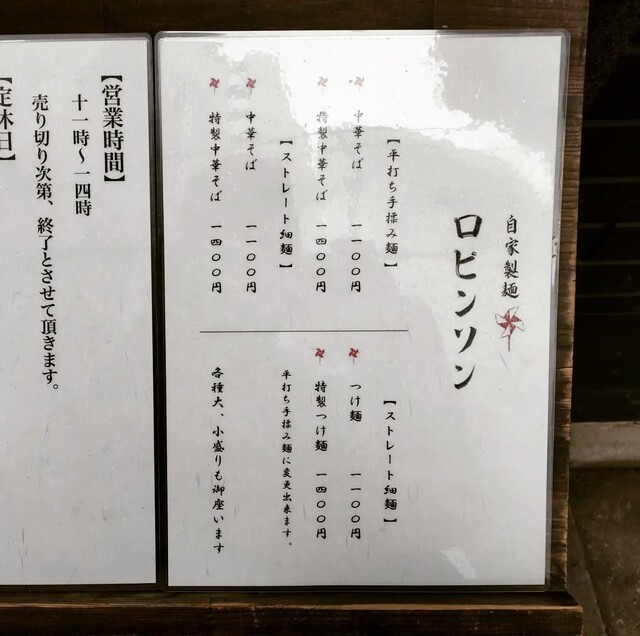 自家製麺
ロピンソン
【平打ち手揉み麺】
中華そば 一一〇〇円
特製中華そば 一四〇〇円
【ストレート細麺】
中華そば 一一〇〇円
特製中華そば 一四〇〇円
【ストレート細麺】
つけ麺 一一〇〇円
特製つけ麺 一四〇〇円
平打ち手揉み麺に変更出来ます。
各種大、小盛りも御座います
【営業時間】
十一時〜一四時
売り切り次第、終了とさせて頂きます。
【定休日】